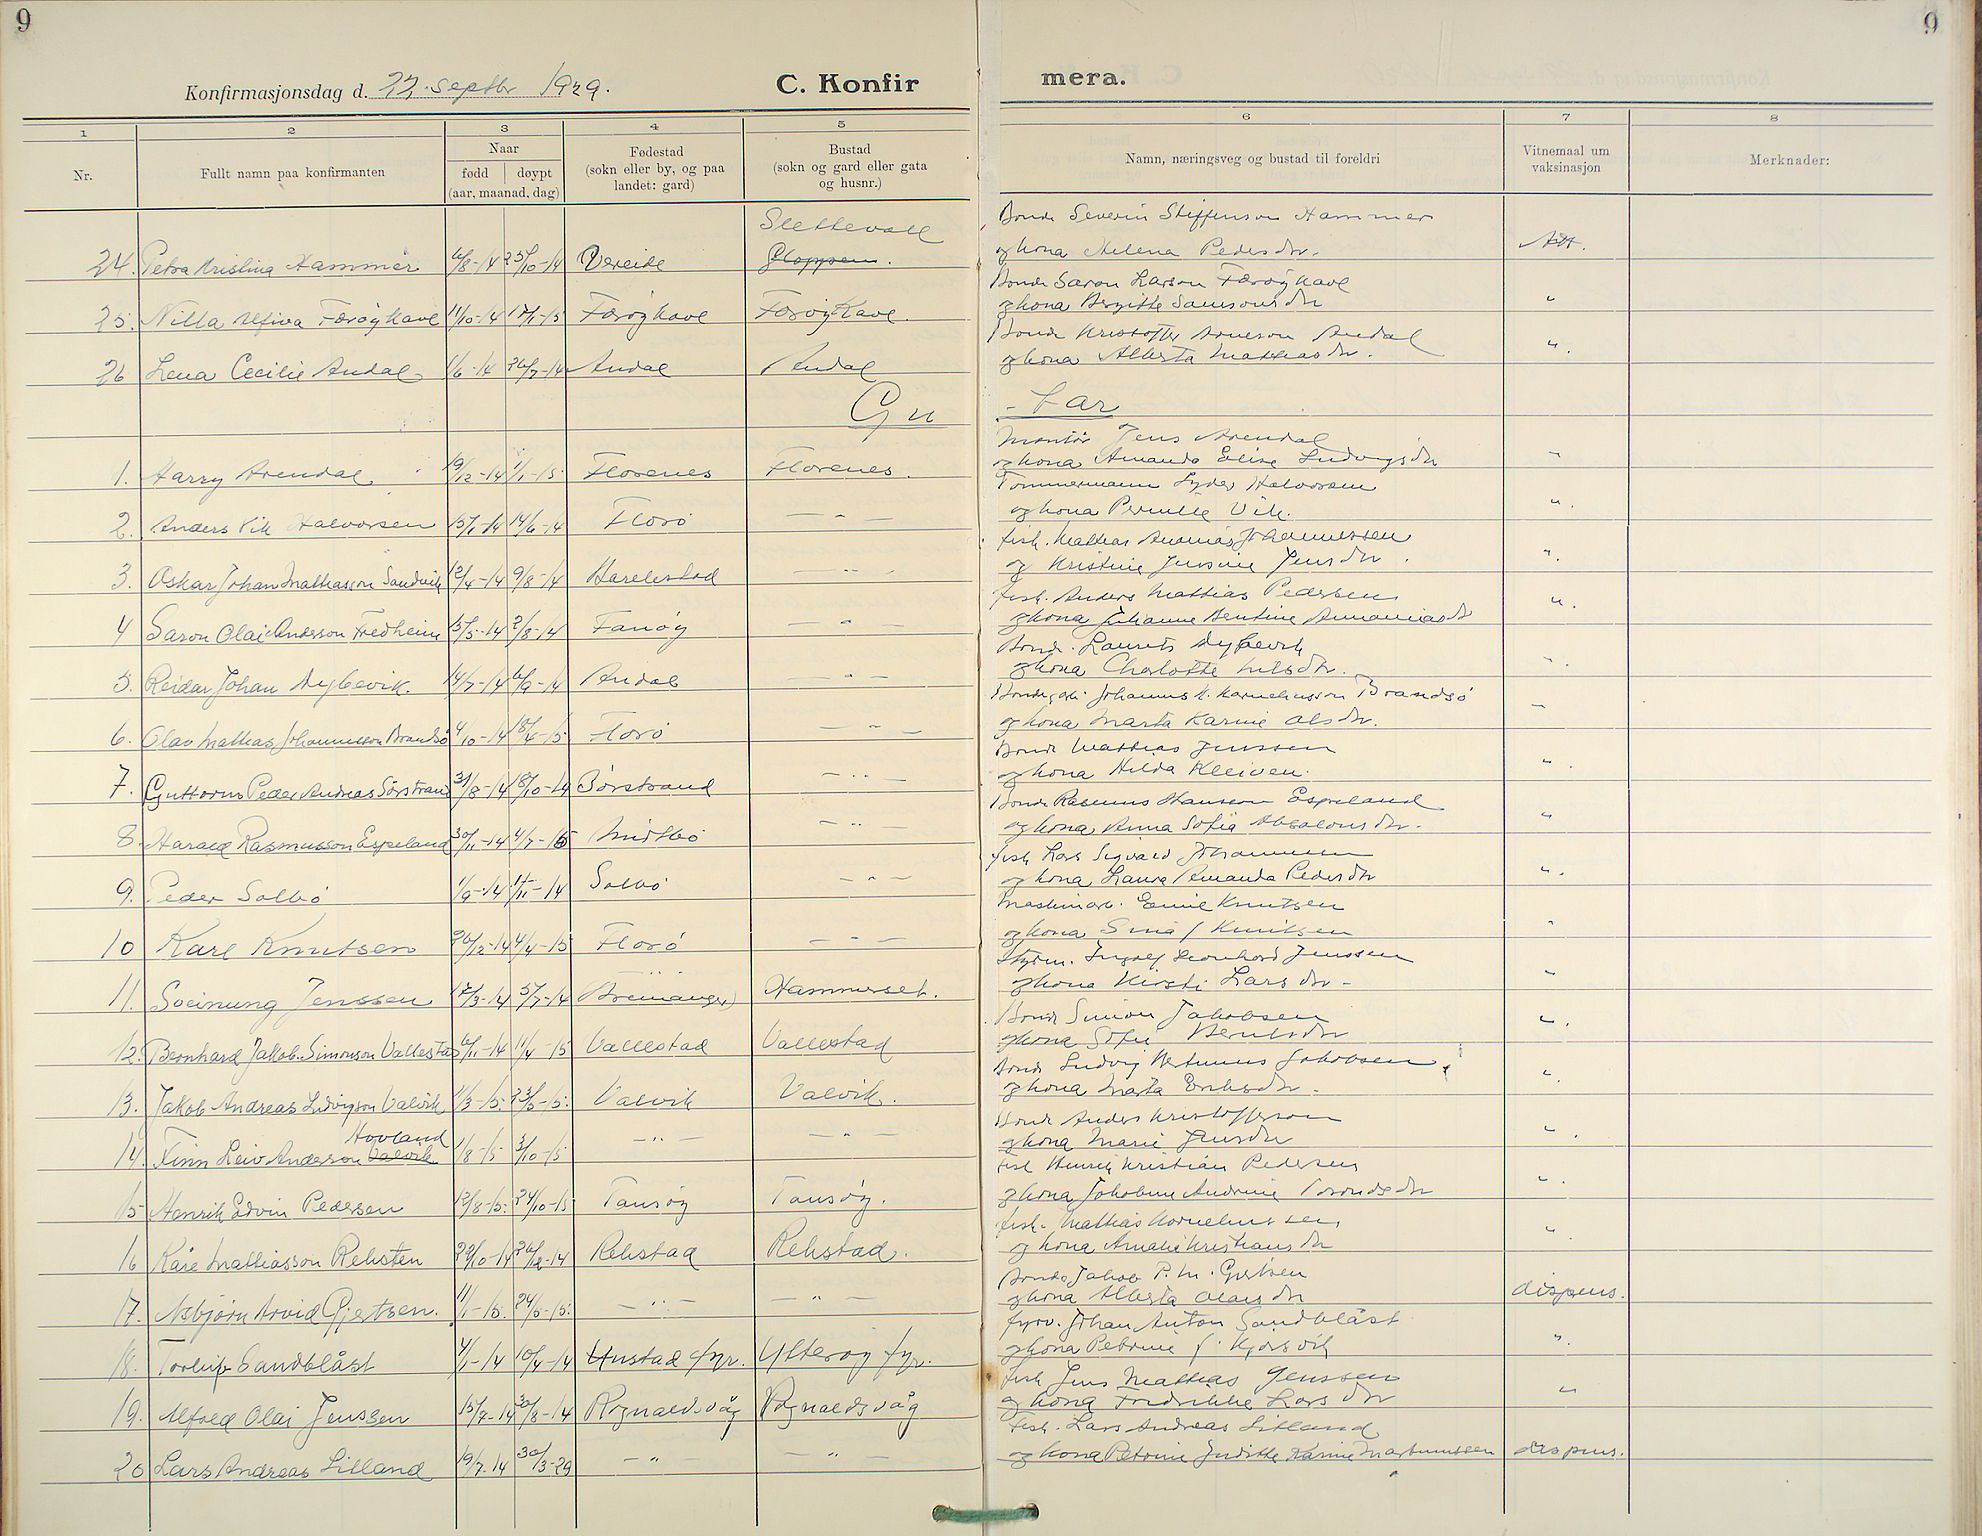 9
9
Konfirmasjonsdag d. 22. septbr 1929.
C. Konfir
mera.
1 2 3 4 5 6 7 8
Nr.
Fullt namn paa konfirmanten
Naar
født døypt
(aar, maanad, dag)
Fødestad
(sokn eller by, og paa
landet: gard)
Bustad
(sokn og gard eller gata
og husnr.)
Namn, næringsveg og bustad til foreldri
Vitnemaal um
vaksinasjon
Merknader:
Slettevall
Bonde Severin Steffenson Hammer
24. Petra Kristina Hammer 6/8-14 25/10-14 Vereide Gloppen. og kona Helena Pedersdtr. Att.
Bonde Saron Larson Færøykavl
25. Nilla Alfiva Færøykavl 11/10-14 17/1-15 Færøykavl Færøykavl. og kona Bergitte Samsonsdtr "
Bonde Kristoffer Arneson Andal
26 Lena Cecilie Andal 1/6-14 26/7-14 Andal Andal og kona Alberta Mathiasdtr. ".
Gu - tar
Montør Jens Arendal
1. Harry Arendal 19/12-14 1/1-15 Florenes Florenes. og kona Amanda Elise Ludvigsdtr "
Tømmermann Syder Halvorsen
2. Anders Vik Halvorsen 15/1-14 14/6-14 Florø — " — og kona Pernille Vik. ".
fisk. Mathias Ananias Johannessen
3. Oskar Johan Mathiasson Sandvik 12/4-14 9/8-14 Harelestad — " — og Kristine Jensine Jensdtr. ".
fisk. Anders Mathias Pedersen
4 Saron Olai Anderson Fredheim 15/5-14 2/8-14 Fanøy — " — og kona Johanne Bentine Ananiasdtr ".
Bonde. Laurits Dybevik
5. Reidar Johan Dybevik. 14/7-14 6/9-14 Andal — " — og kona Charlotte Nilsdtr. ".
Johannes K. Korneliusson Brandsø
6. Olav Mathias Johannesson Brandsø 4/10-14 18/4-15 Florø — " — og kona Marta Karine Olsdtr. "
Bonde Mathias Jenssen
7. Guttorm Peder Andreas Sørstrand 31/8-14 18/10-14 Sørstrand — " — og kona Hilda Kleiven. ".
Bonde Rasmus Hansson Espeland
8. Harald Rasmusson Espeland 30/11-14 4/7-15 Midtbø — " — og kona Anna Sofia Absalonsdtr. "
fisk Lars Sigvald Johannessen
9. Peder Solbø 1/9-14 1/11-14 Solbø — " — og kona Laura Amanda Pedersdtr ".
Maskinarb. Emil Knutsen
10 Karl Knutsen 26/12-14 4/4-15 Florø — " — og kona Sina f Knutsen "
Styrm. Ingolf Leonhard Jenssen
11. Sveinung Jenssen 17/3-14 5/7-14 Bremanger) Hammerset. og kona Kirsti Larsdtr - "
Bonde Simon Jakobsen
12. Bernhard Jakob. Simonson Vallestad 6/11-14 11/4-15 Vallestad Vallestad og kona Sofie Berntsdtr ".
Bonde Ludvig Jakobsen
13. Jakob Andreas Ludvigson Valvik 11/3-15. 23/5-15. Valvik Valvik. og kona Marta Eriksdtr. ".
Hovland
Bonde Anders Kristofferson
14. Finn Leiv Anderson Valvik 1/8-15 3/10-15 — " — — " — og kona Marie Jensdtr ".
fisk Henrik Kristian Pedersen
15 Henrik Edvin Pedersen 12/8-15. 24/10-15 Tansøy Tansøy. og kona Jakobine Andrine Trondsdtr ".
fisk. Mathias Korneliussen
16 Kåre Mathiasson Reksten 29/10-14 26/12-14 Rekstad Rekstad. og kona Amalie Kristiansdtr ".
Bonde Jakob P. M. Gjertsen
17. Asbjørn Arvid Gjertsen. 11/1-15. 24/5-15. — " — — " — og kona Alberta Olaisdtr dispens.
fyrv. Johan Anton Sandblåst
18. Torleif Sandblåst 4/1-14 10/4-14 Hustad fyr. Ytterøy fyr. og kona Petrine f. Kjørsvik ".
fisk Jens Mathias Jenssen
19. Alfred Olai Jenssen 15/7-14 30/8-14 Rognaldsvåg Rognaldsvåg og kona Fredrikke Larsdtr "
Fisk. Lars Andreas Lilland
20 Lars Andreas Lilland 19/7-14 30/3-29 — " — — " — og kona Petrine Judithe Karine Martinussen dispens.